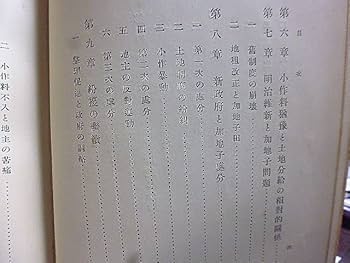 目次
第六章 小作料獲像と土地分給の相對的關係
第七章 明治維新と加地子問題
一 舊制度の崩壞
二 地租改正と加地子田
第八章 新政府と加地子處分
一 第一次の處分
二 土地制度の整理
三 小作暴動
四 第二次の處分
五 地主の反動運動
六 第三次の處分
第九章 紛擾の
一 整理促進と政府の
二 小作料不入と地主の苦痛